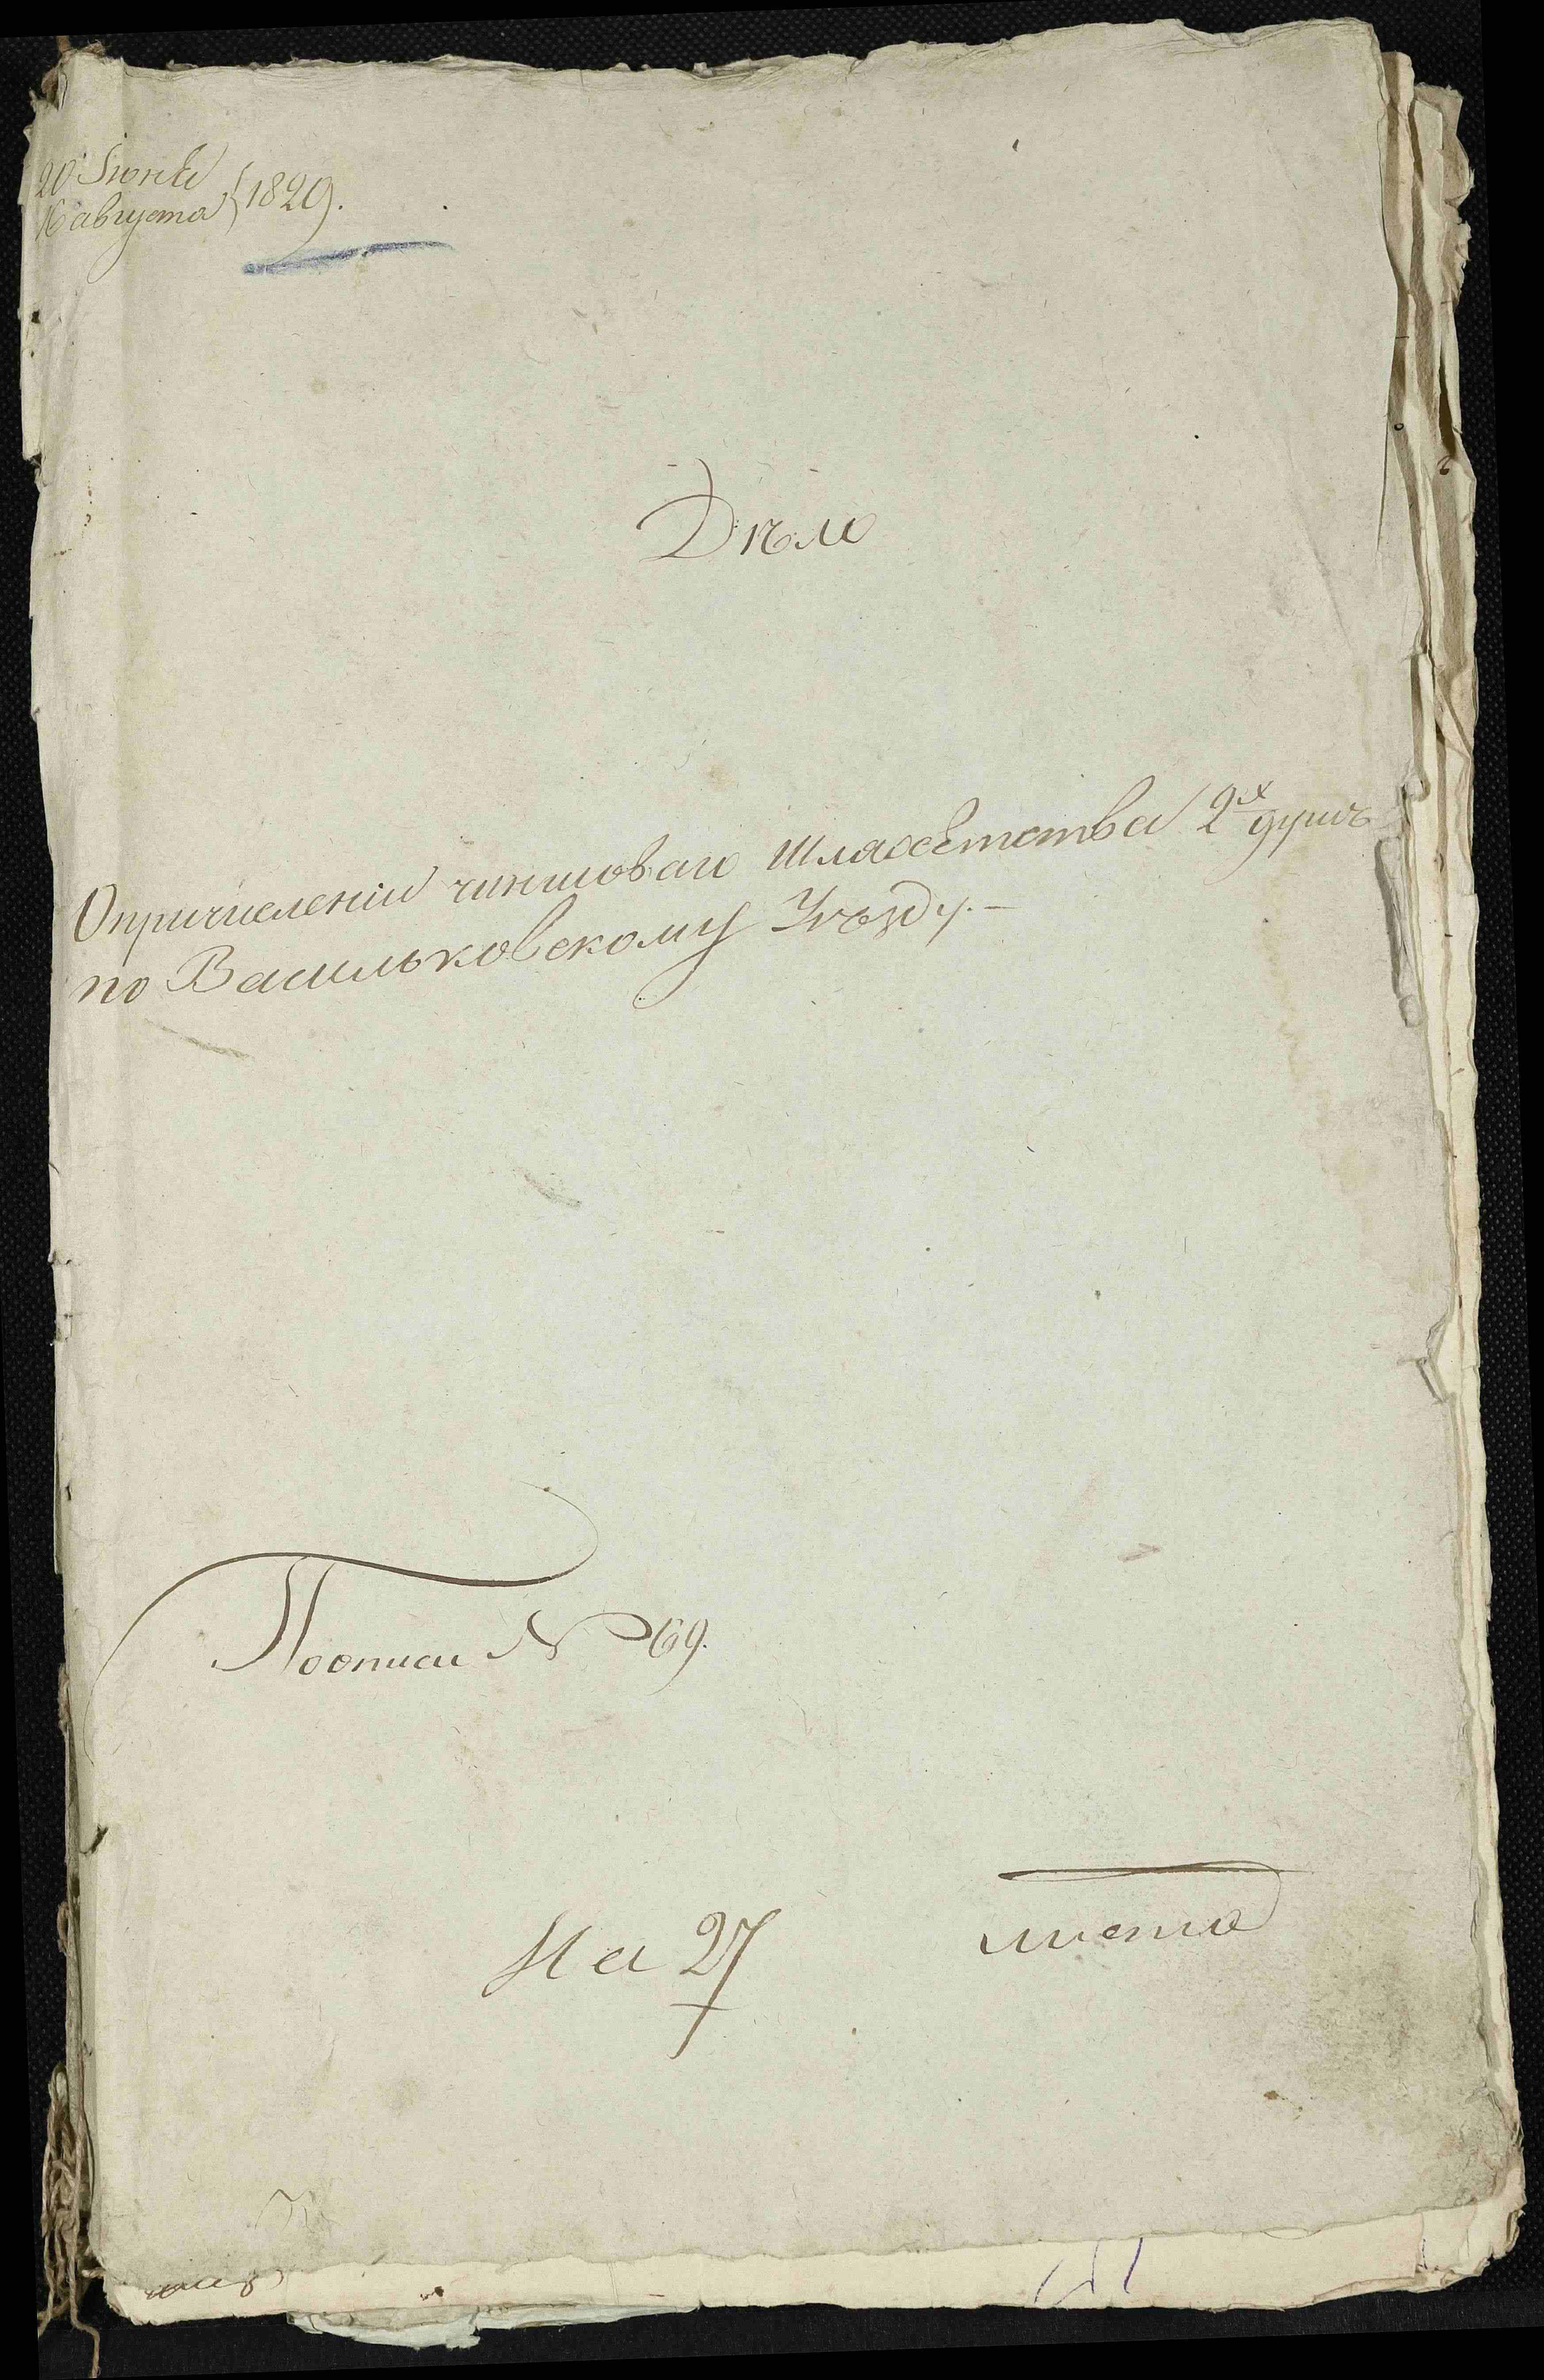 20 Іюня
16 августа } 1829.
Дѣло
О причисленіи чиншоваго шляхетства 2х душъ
по Васильковскому Уѣзду.-
По описи № 69.
На 27 листа